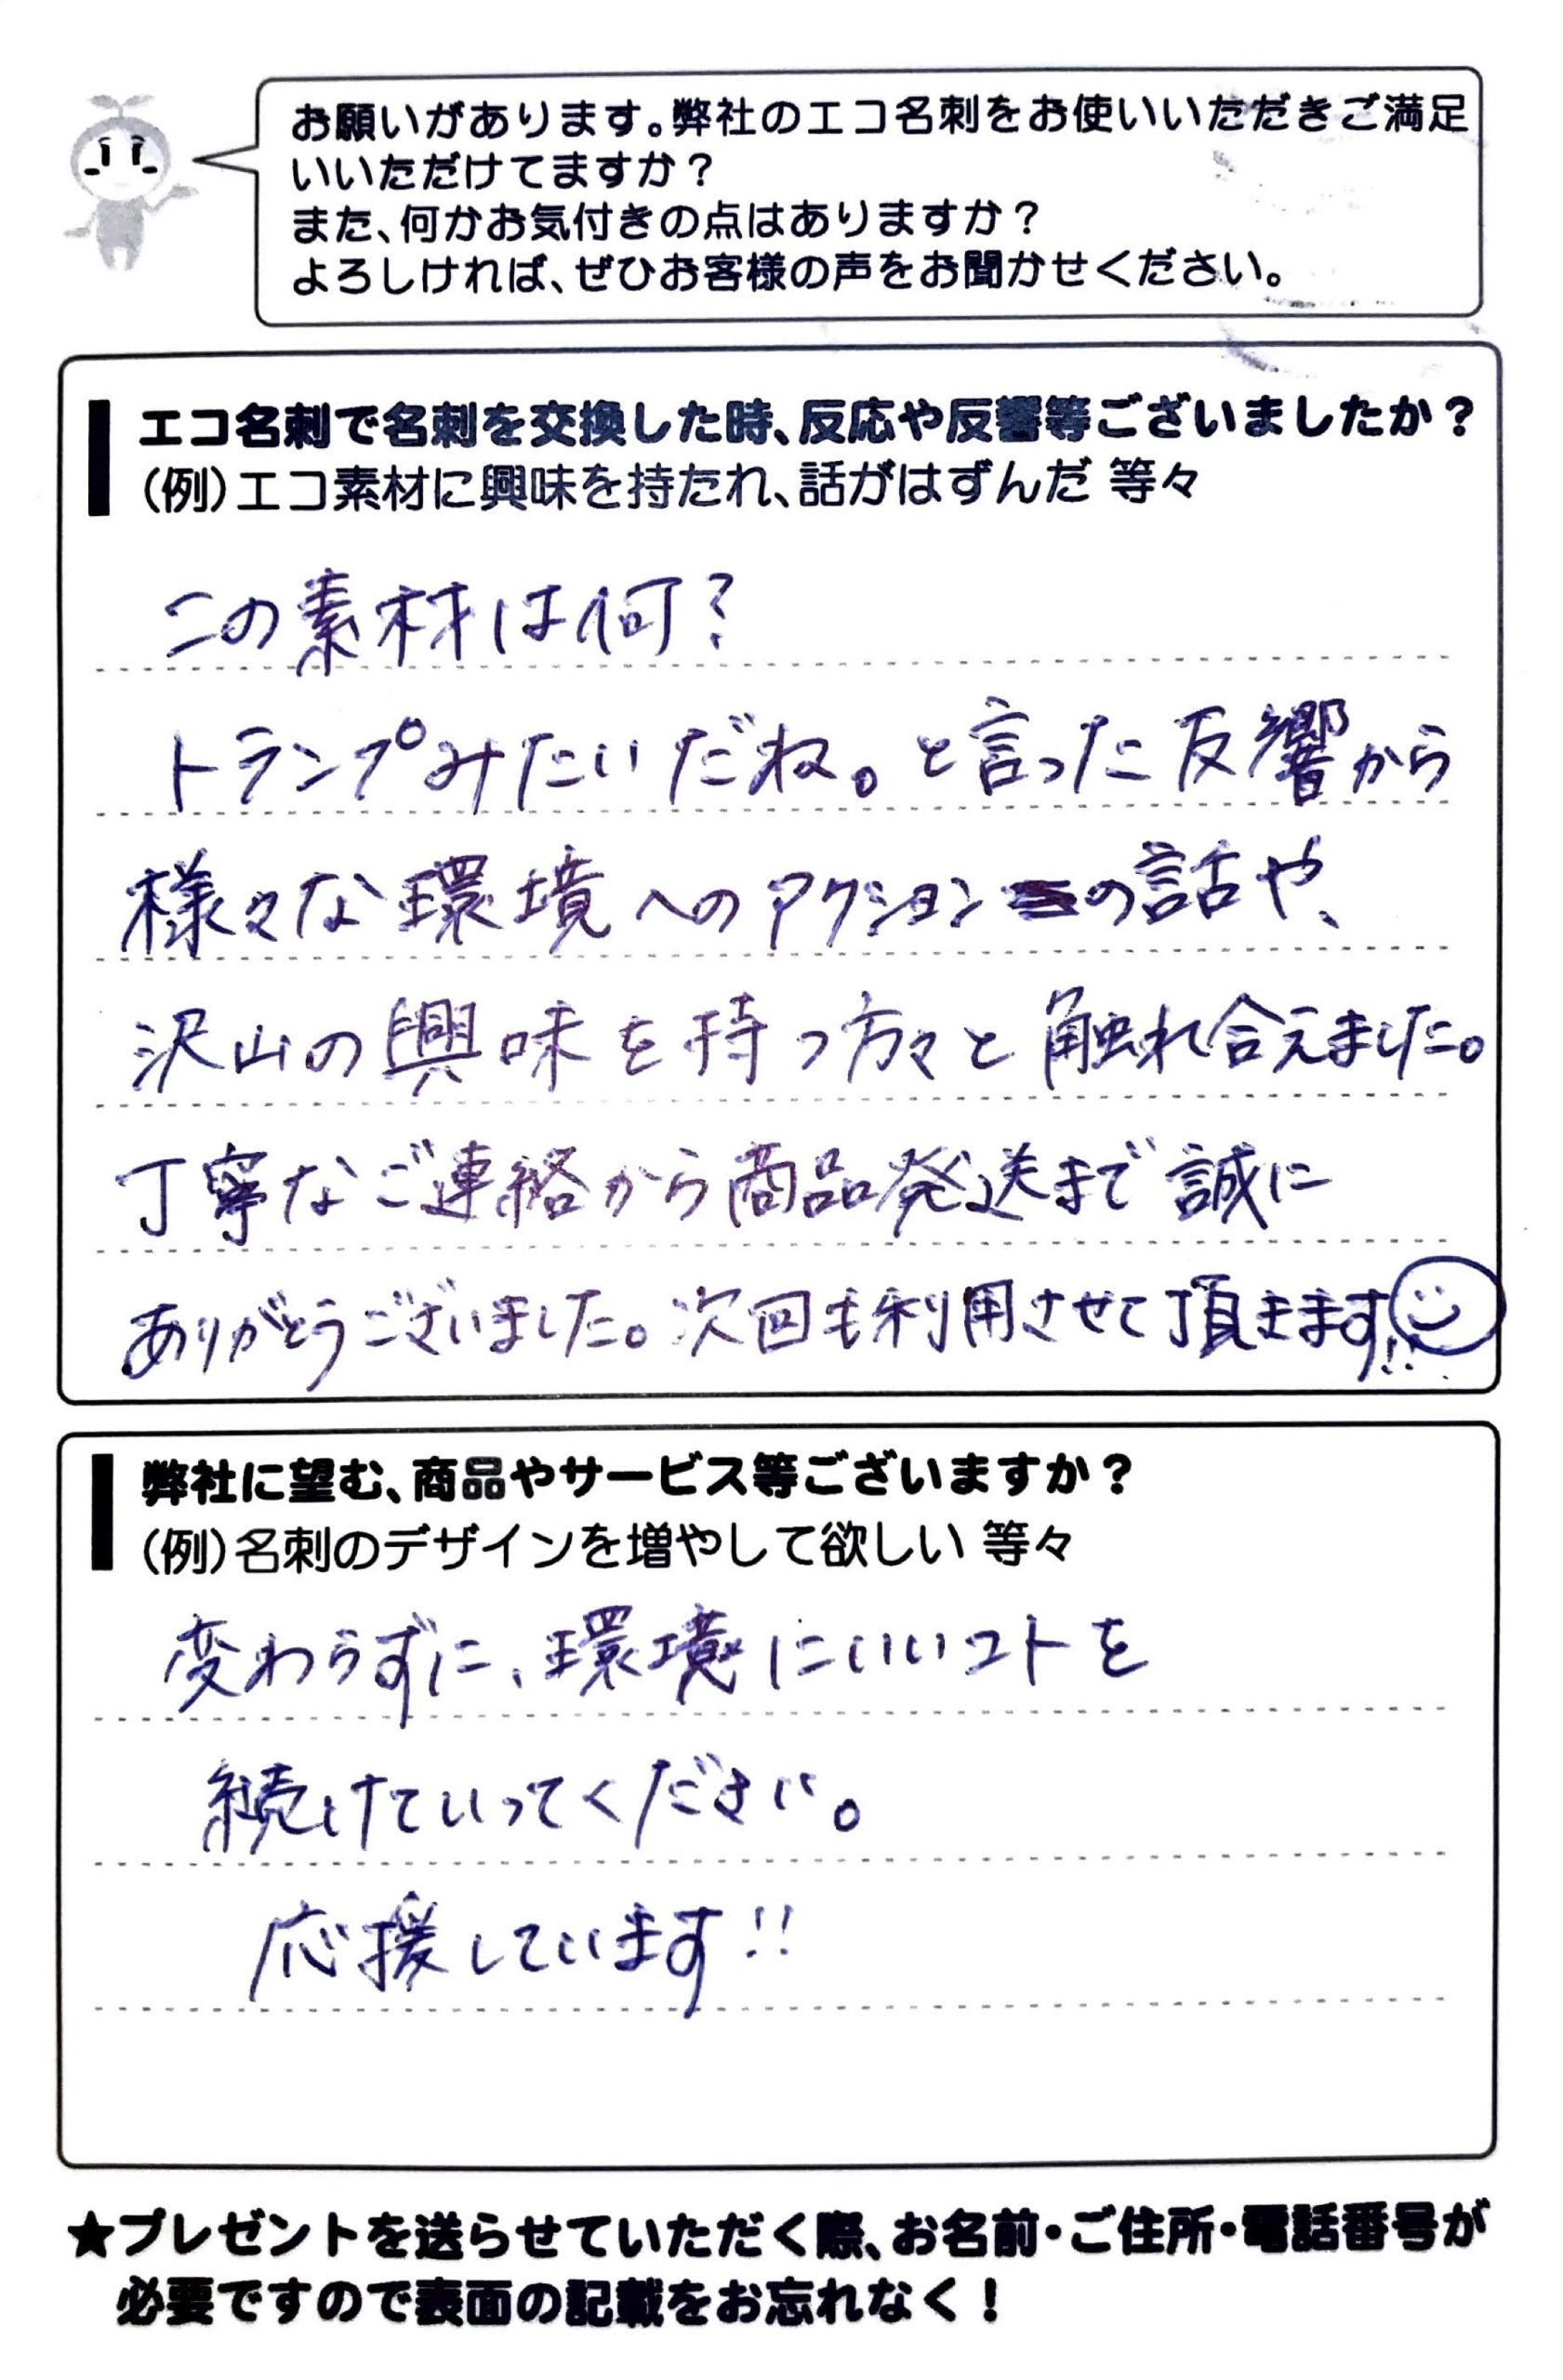 お願いがあります。弊社のエコ名刺をお使いいただきご満足
いいただけてますか？
また、何かお気付きの点はありますか？
よろしければ、ぜひお客様の声をお聞かせください。
エコ名刺で名刺を交換した時、反応や反響等ございましたか？
（例）エコ素材に興味を持たれ、話がはずんだ 等々
この素材は何？
トランプみたいだね。と言った反響から
様々な環境へのアクションの話や、
沢山の興味を持つ方々と触れ合えました。
丁寧なご連絡から商品発送まで誠に
ありがとうございました。次回も利用させて頂きます!!
弊社に望む、商品やサービス等ございますか？
（例）名刺のデザインを増やして欲しい 等々
変わらずに、環境にいいコトを
続けていってください。
応援しています!!
★プレゼントを送らせていただく際、お名前・ご住所・電話番号が
必要ですので表面の記載をお忘れなく！